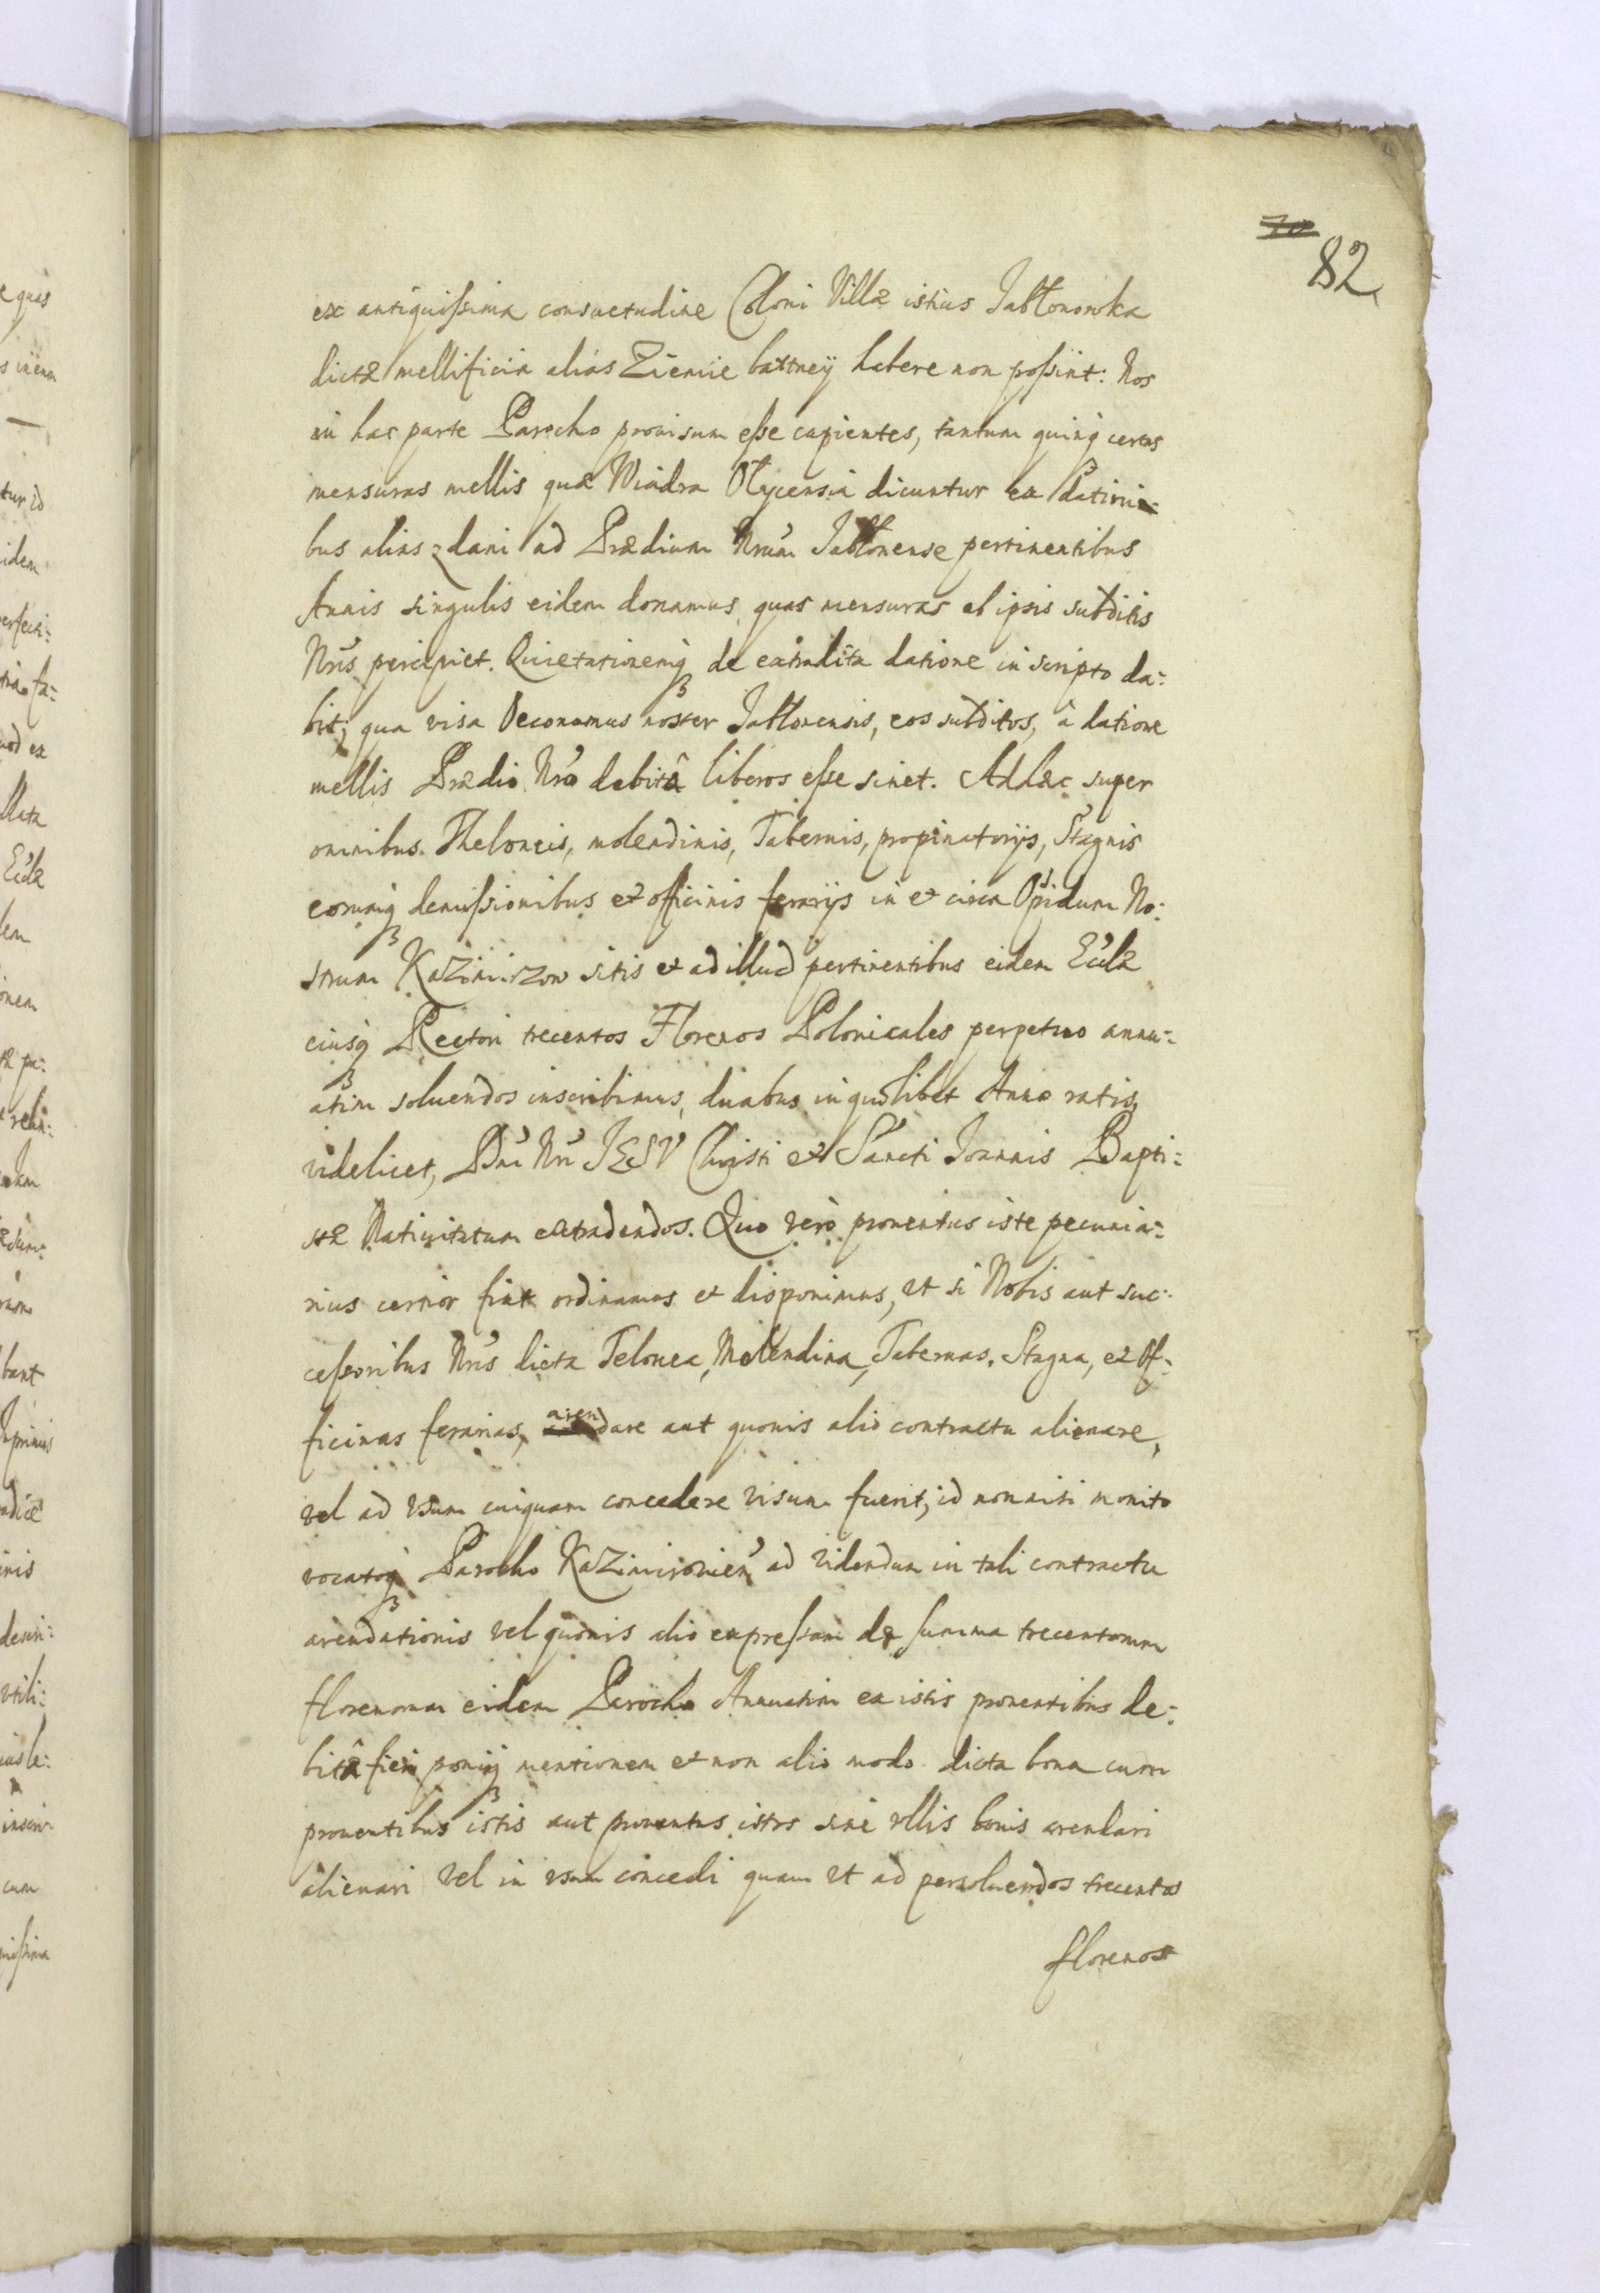 70
82
ex antiquissima consuetudine Coloni Villæ istius Jabłonowka
dictæ mellificia aliàs Ziemie barttney habere non possint: Nos
in hac parte Parocho prouisum esse cupientes, tantum quinq certas
mensuras mellis quæ Wiadra Ołycensia dicuntur ex Dationi-
bus alias zdani ad Prædium Nrum Jabłonense pertinentibus
Annis singulis eidem donamus, quas mensuras ab ipsis subditis
Nris percipiet. Quietationemq de extradita datione in scripto da:
bit; qua visa Oeconomus noster Jabłonensis, eos subditos, à datione
mellis Prædio Nro debitâ liberos esse sinet. Adhæc super
omnibus Theloneis, molendinis, Tabernis, propinatorijs, Stagnis
eorumq demissionibus et officinis ferrarijs in et circa Opidum No:
strum Kazimirzow sitis et ad illud pertinentibus eidem Ecclæ
eiusq Rectori trecentos Florenos Polonicales perpetuo annu:
atim soluendos inscribimus, duabus in quolibet Anno ratis,
videlicet, Dni Nri JESV Christi et Sancti Joannis Bapti:
stæ Natiuitatum extradendos. Quo verò prouentus iste pecunia:
rius certior fiat ordinamus et disponimus, vt si Nobis aut suc:
cessoribus Nris dicta Telonea, Molendina, Tabernas, Stagna, et Of:
ficinas ferarias, arendare aut quouis alio contractu alienare,
vel ad vsum cuiquam concedere visum fuerit, id nonnisi monito
vocatoq Parocho Kazimirouien ad videndum in tali contractu
arendationis vel quouis alio expressam de summa trecentorum
florenorum eidem Parocho Annuatim ex istis prouentibus de:
bitâ fieri poniq mentionem et non alio modo dicta bona cum
prouentibus istis aut prouentus istos sine vllis bonis arendari
alienari vel in vsum concedi quam vt ad persoluendos trecentos
florenos